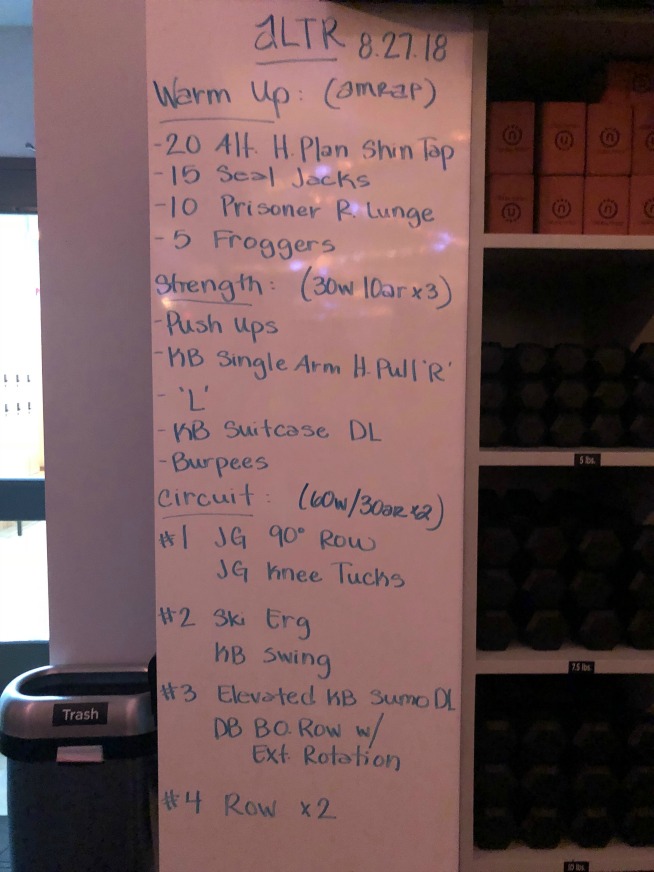 ALTR 8.27.18
Warm Up: (amrap)
-20 Alt. H. Plan Shin Tap
-15 Seal Jacks
-10 Prisoner R. Lunge
-5 Froggers
Strength: (30w 10ar x3)
-Push Ups
-KB Single Arm H. Pull 'R'
- 'L'
-KB Suitcase DL
-Burpees
Circuit: (60w/30ar x2)
#1 JG 90° Row
JG Knee Tucks
#2 Ski Erg
KB Swing
#3 Elevated KB Sumo DL
DB BO. Row w/
Ext. Rotation
#4 Row x2
Trash
5 lbs.
7.5 lbs.
10 lbs.